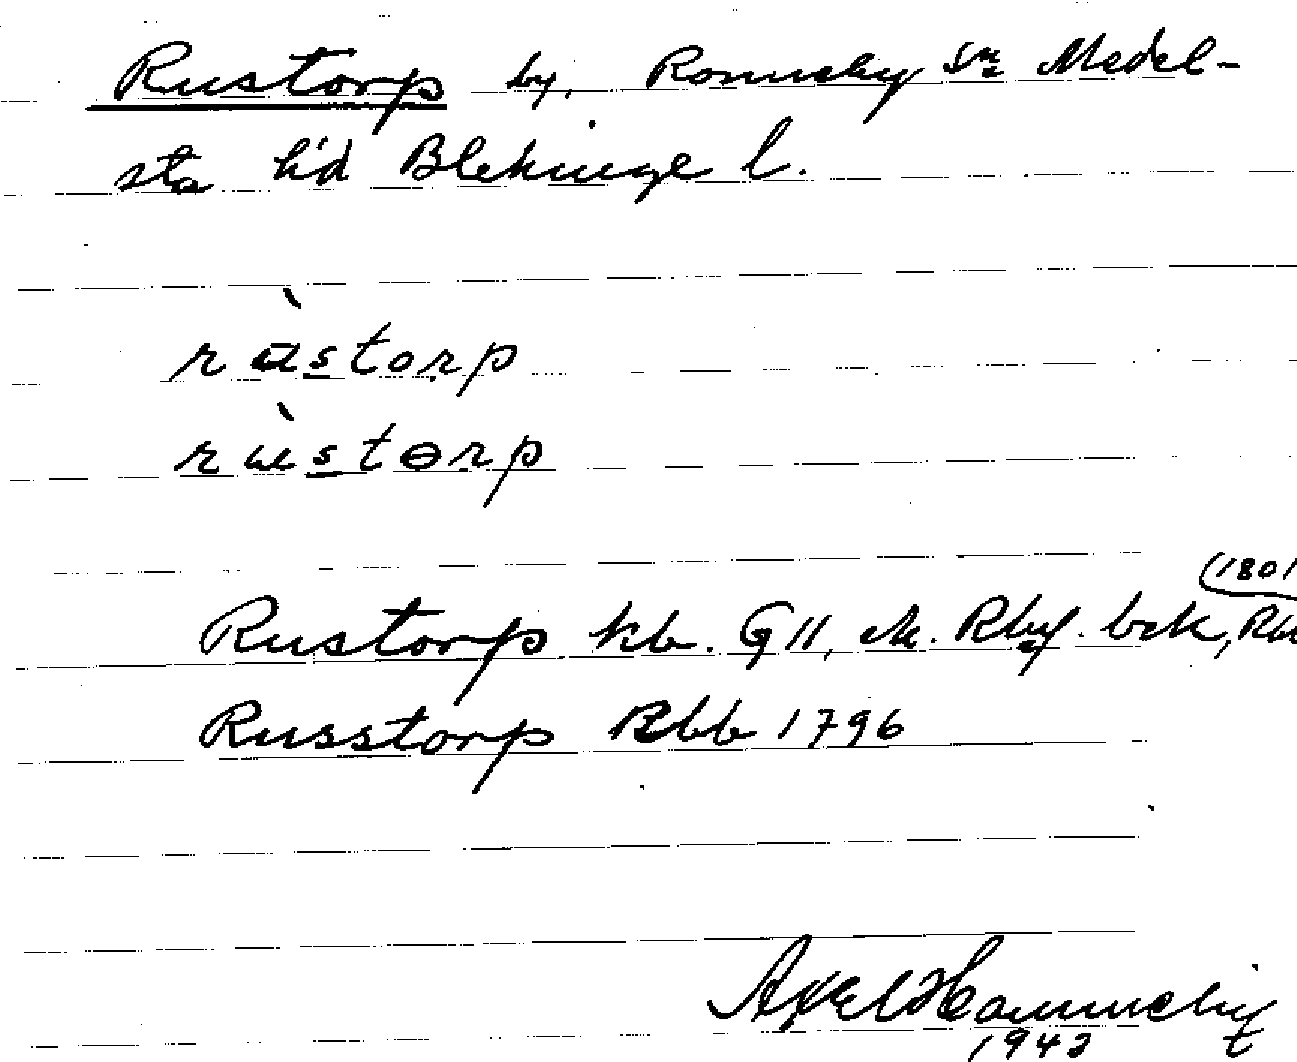 Rustorp by, Ronneby sn Medel-
sta hd Blekinge l.
ràstorp
rùstɵrp
Rustorp kb. G 11, Rby. bck, (1801
Russtorp Rbb 1796
Axel Hannerby